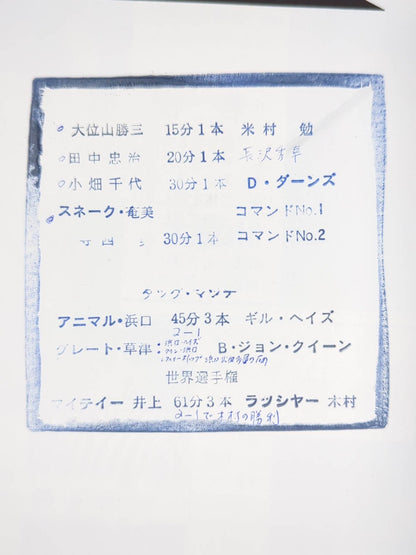 大位山勝三 15分1本 米村 勉
田中忠治 20分1本
小畑千代 30分1本 D・ダーンズ
スネーク・奄美 コマンドNo.1
寺西 30分1本 コマンドNo.2
タッグ・マッチ
アニマル・浜口 45分3本 ギル・ヘイズ
2-1
グレート・草津 B・ジョン・クイーン
世界選手権
マイテイー 井上 61分3本 ラッシャー 木村
2-1で木村の勝利